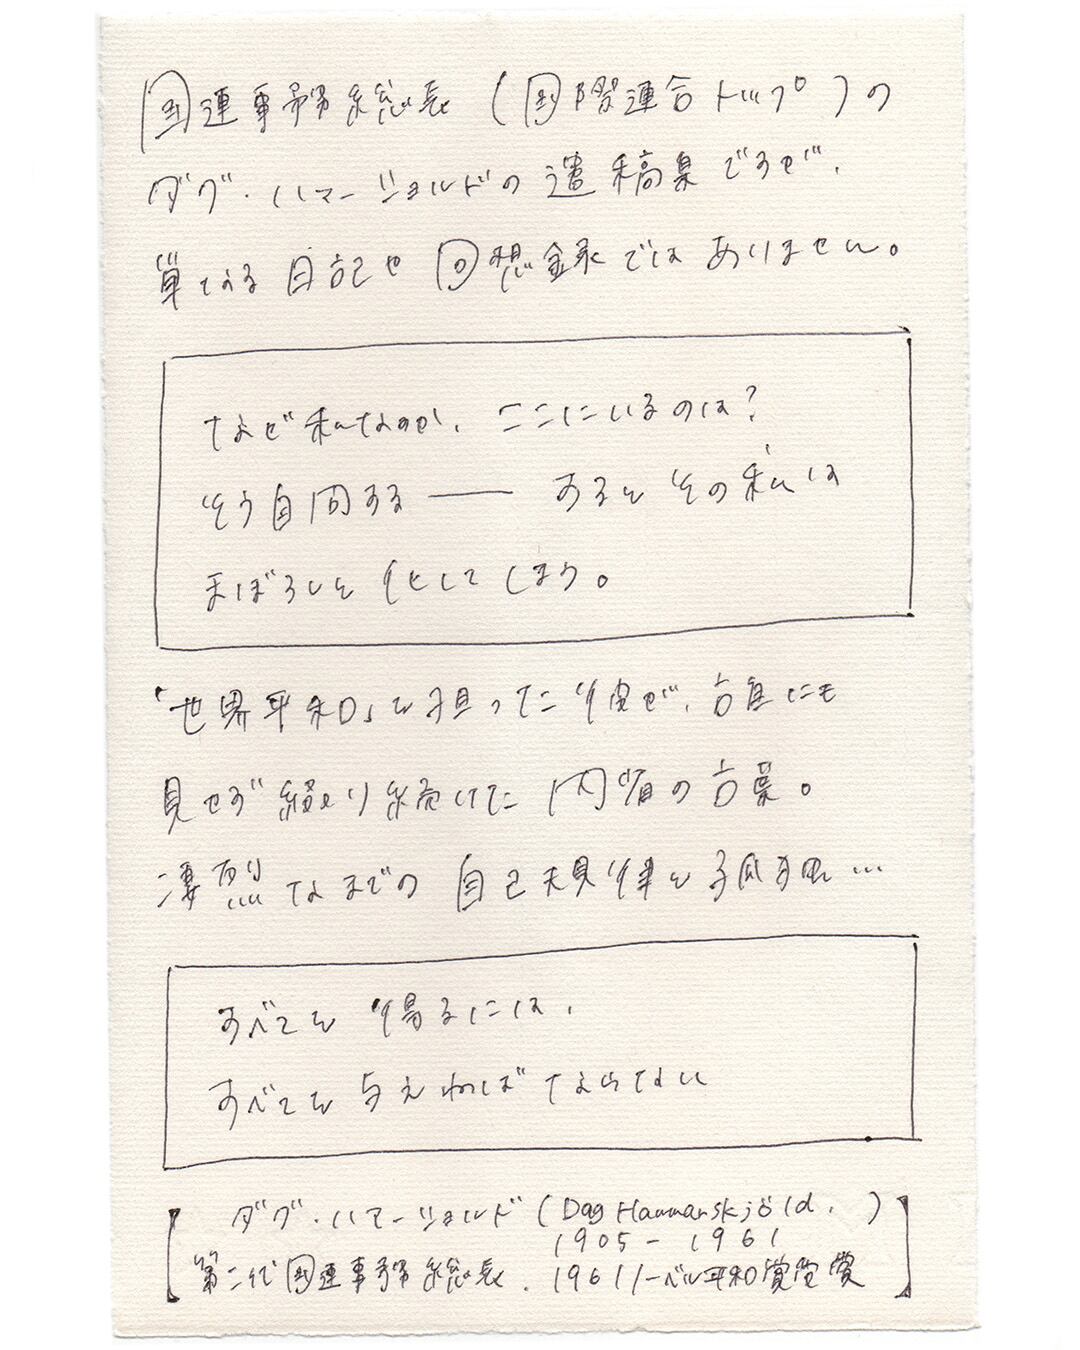 国連事務総長（国際連合トップ）の
ダグ・ハマーショルドの遺稿集ですが、
単なる日記や回想録ではありません。
なぜ私なのか、ここにいるのは？
そう自問する―― するとその私は
まぼろしと化してしまう。
「世界平和」を担った彼が、台座にも
見せず綴り続けた内省の言葉。
凄烈なまでの自己規律と孤独…
すべてを得るには、
すべてを与えねばならない
ダグ・ハマーショルド（Dag Hammarskjöld,）
1905－1961
第二代国連事務総長、1961ノーベル平和賞受賞